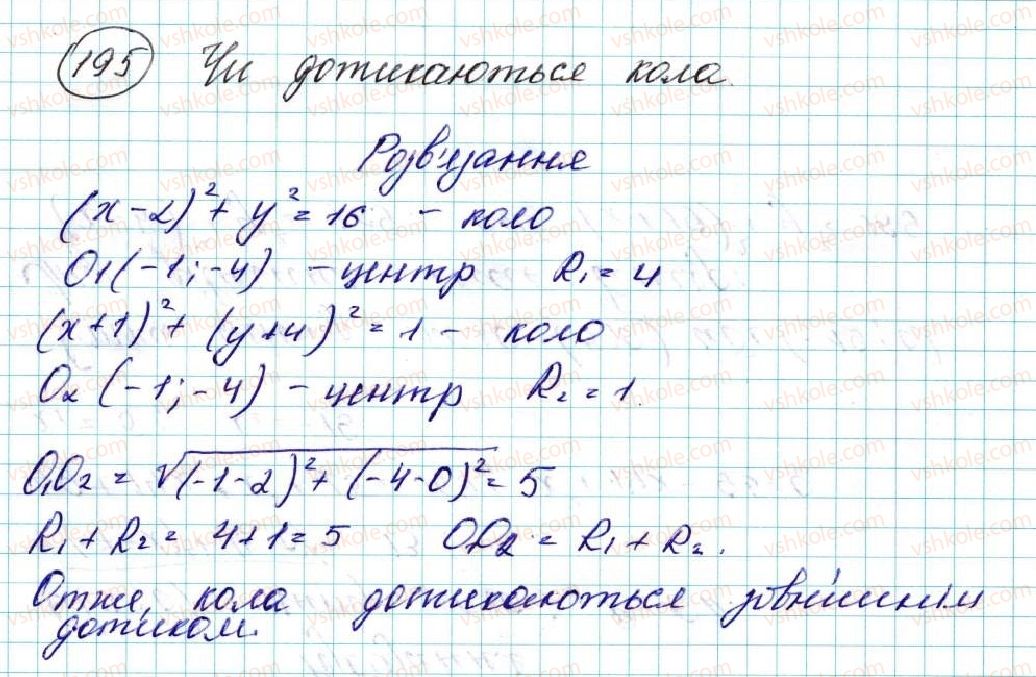 195 Чи дотикаються кола.
Розв'язання
(x-2)² + y² = 16 - коло
O1(-1;-4) - центр R₁ = 4
(x+1)² + (y+4)² = 1 - коло
O₂(-1;-4) - центр R₂ = 1.
O₁O₂ = √(-1-2)² + (-4-0)² = 5
R₁ + R₂ = 4+1 = 5 O₁O₂ = R₁ + R₂.
Отже, кола дотикаються зовнішнім
дотиком.